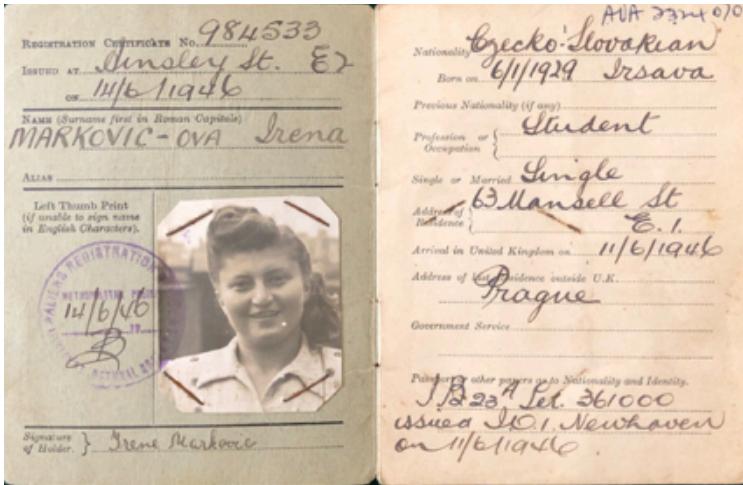 REGISTRATION CERTIFICATE No. 984533
ISSUED AT Ainsley St. E2
ON 14/6/1946
NAME (Surname first in Roman Capitals)
MARKOVIC-OVA Irena
ALIAS
Left Thumb Print
(if unable to sign name
in English Characters).
ALIENS REGISTRATION
14/6/46
Signature
of Holder.
Irene Markovic
Nationality Czecko-Slovakian
Born on 6/1/1929 Irsava
Previous Nationality (if any)
Profession or
Occupation
Student
Single or Married Single
Address of
Residence
63 Mansell St
E.1.
Arrival in United Kingdom on 11/6/1946
Address of last Residence outside U.K.
Prague
Government Service
Passport or other papers as to Nationality and Identity.
23A Let. 361000
issued I.O.1. Newhaven
on 11/6/1946